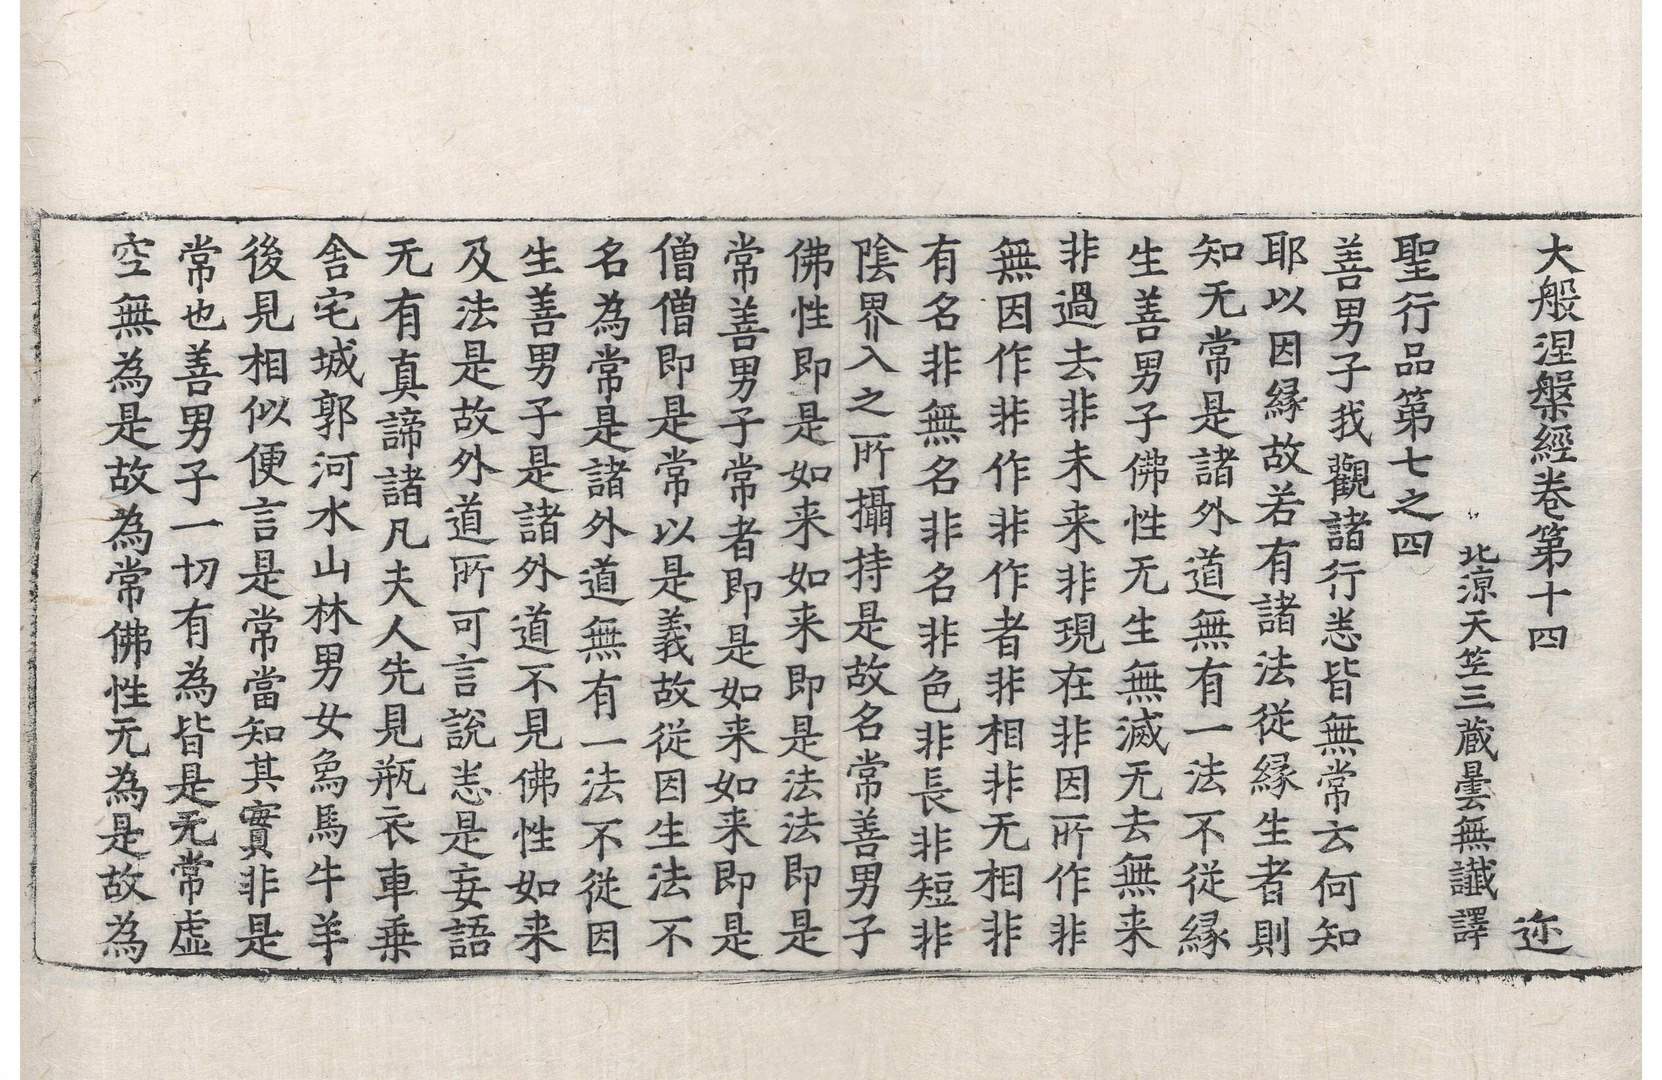 大般涅槃經卷第十四　迩
北涼天竺三蔵曇無讖譯
聖行品第七之四
善男子我觀諸行悉皆無常云何知
耶以因縁故若有諸法從縁生者則
知无常是諸外道無有一法不從縁
生善男子佛性无生無滅无去無来
非過去非未来非現在非因所作非
無因作非作非作者非相非无相非
有名非無名非名非色非長非短非
陰界入之所攝持是故名常善男子
佛性即是如来如来即是法法即是
常善男子常者即是如来如来即是
僧僧即是常以是義故從因生法不
名為常是諸外道無有一法不從因
生善男子是諸外道不見佛性如来
及法是故外道所可言說悉是妄語
无有真諦諸凡夫人先見瓶衣車乗
舎宅城郭河水山林男女象馬牛羊
後見相似便言是常當知其實非是
常也善男子一切有為皆是无常虚
空無為是故為常佛性无為是故為